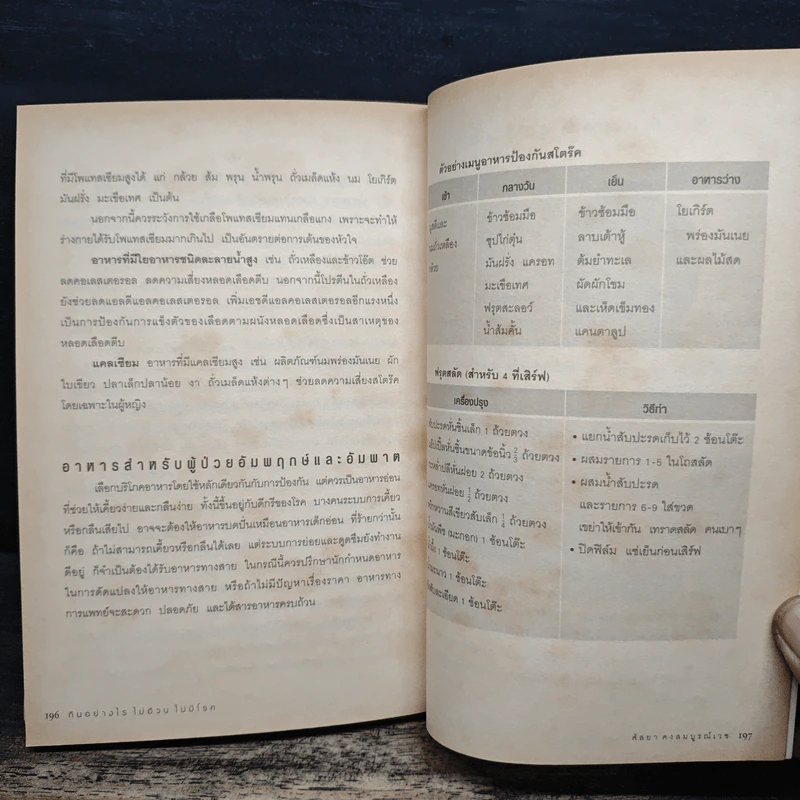 ที่มีโพแทสเซียมสูงได้ แก่ กล้วย ส้ม พรุน น้ำพรุน ถั่วเมล็ดแห้ง นม โยเกิร์ต
มันฝรั่ง มะเขือเทศ เป็นต้น
นอกจากนี้ควรระวังการใช้เกลือโพแทสเซียมแทนเกลือแกง เพราะจะทำให้
ร่างกายได้รับโพแทสเซียมมากเกินไป เป็นอันตรายต่อการเต้นของหัวใจ
อาหารที่มีใยอาหารชนิดละลายน้ำสูง เช่น ถั่วเหลืองและข้าวโอ๊ต ช่วย
ลดคอเลสเตอรอล ลดความเสี่ยงหลอดเลือดตีบ นอกจากนี้โปรตีนในถั่วเหลือง
ยังช่วยลดแอลดีแอลคอเลสเตอรอล เพิ่มเอชดีแอลคอเลสเตอรอลอีกแรงหนึ่ง
เป็นการป้องกันการแข็งตัวของเลือดตามผนังหลอดเลือดซึ่งเป็นสาเหตุของ
หลอดเลือดตีบ
แคลเซียม อาหารที่มีแคลเซียมสูง เช่น ผลิตภัณฑ์นมพร่องมันเนย ผัก
ใบเขียว ปลาเล็กปลาน้อย งา ถั่วเมล็ดแห้งต่างๆ ช่วยลดความเสี่ยงสโตร๊ค
โดยเฉพาะในผู้หญิง
อาหารสำหรับผู้ป่วยอัมพฤกษ์และอัมพาต
เลือกบริโภคอาหารโดยใช้หลักเดียวกันกับการป้องกัน แต่ควรเป็นอาหารอ่อน
ที่ช่วยให้เคี้ยวง่ายและกลืนง่าย ทั้งนี้ขึ้นอยู่กับดีกรีของโรค บางคนระบบการเคี้ยว
หรือกลืนเสียไป อาจจะต้องให้อาหารบดปั่นเหมือนอาหารเด็กอ่อน ที่ร้ายกว่านั้น
ก็คือ ถ้าไม่สามารถเคี้ยวหรือกลืนได้เลย แต่ระบบการย่อยและดูดซึมยังทำงาน
ดีอยู่ ก็จำเป็นต้องได้รับอาหารทางสาย ในกรณีนี้ควรปรึกษานักกำหนดอาหาร
ในการดัดแปลงให้อาหารทางสาย หรือถ้าไม่มีปัญหาเรื่องราคา อาหารทาง
การแพทย์จะสะดวก ปลอดภัย และได้สารอาหารครบถ้วน
196 กินอย่างไร ไม่อ้วน ไม่มีโรค
ตัวอย่างเมนูอาหารป้องกันสโตร๊ค
เช้า กลางวัน เย็น อาหารว่าง
ข้าวซ้อมมือ ข้าวซ้อมมือ โยเกิร์ต
ซุปไก่ตุ๋น ลาบเต้าหู้ พร่องมันเนย
มันฝรั่ง แครอท ต้มยำทะเล และผลไม้สด
มะเขือเทศ ผัดผักโขม
ฟรุตสะลอว์ และเห็ดเข็มทอง
น้ำส้มคั้น แคนตาลูป
ฟรุตสลัด (สำหรับ 4 ที่เสิร์ฟ)
เครื่องปรุง วิธีทำ
ับปะรดหั่นชิ้นเล็ก 1 ถ้วยตวง • แยกน้ำสับปะรดเก็บไว้ 2 ช้อนโต๊ะ
หั่นชิ้นขนาดข้อนิ้ว 2/3 ถ้วยตวง • ผสมรายการ 1-5 ในโถสลัด
ะหล่ำปลีหั่นฝอย 2 ถ้วยตวง • ผสมน้ำสับปะรด
หั่นฝอย ถ้วยตวง และรายการ 6-9 ใส่ขวด
หวานสีเขียวสับเล็ก ถ้วยตวง เขย่าให้เข้ากัน เทราดสลัด คนเบาๆ
(มะกอก) 1 ช้อนโต๊ะ • ปิดฟิล์ม แช่เย็นก่อนเสิร์ฟ
1 ช้อนโต๊ะ
ะนาว 1 ช้อนโต๊ะ
ละเอียด 1 ช้อนโต๊ะ
ศัลยา คงสมบูรณ์เวช 197